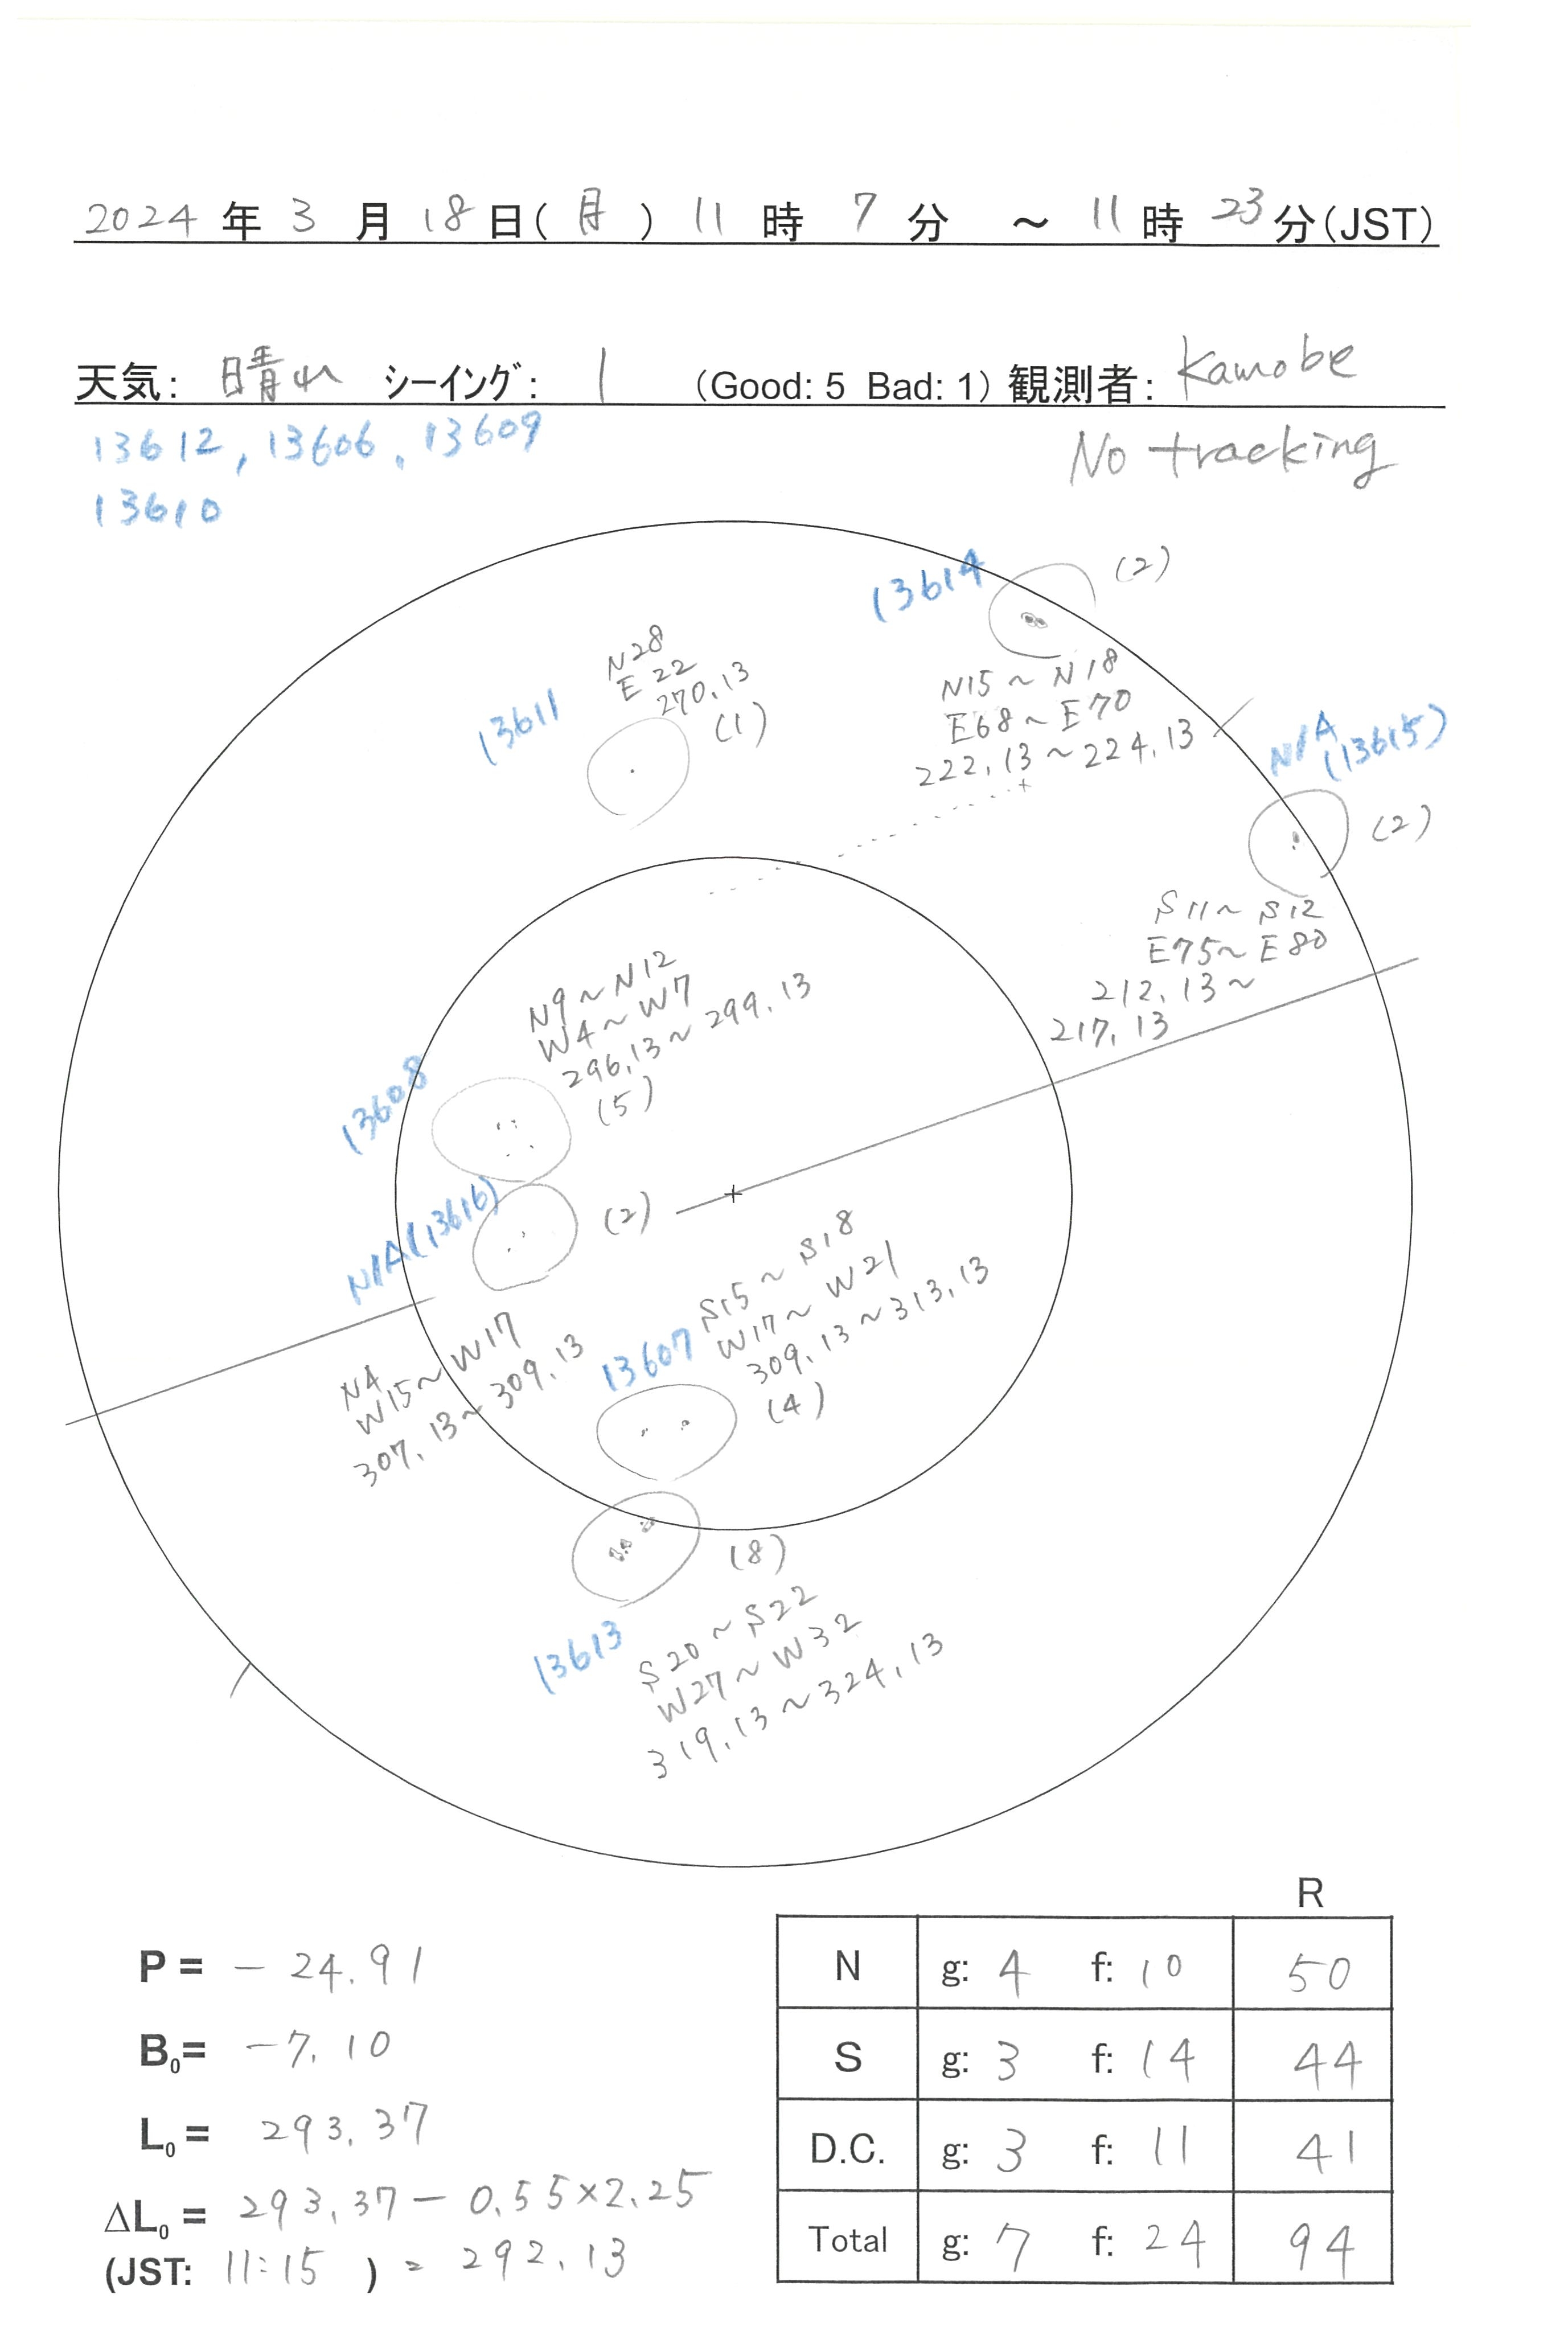 2024 年 3 月 18 日(月) 11 時 7 分 ～ 11 時 23 分(JST)
天気: 晴れ シーイング: 1 (Good: 5 Bad: 1) 観測者: Kamobe
13612, 13606, 13609
13610
No tracking
13614
(2)
N15~N18
E68~E70
222.13~224.13
N28
E22
270.13
(1)
13611
N/A
(13615)
(2)
S11~S12
E75~E80
212.13~
217.13
N9~N12
W4~W7
296.13~299.13
(5)
13608
N/A(13616)
(2)
N4
W15~W17
307.13~309.13
S15~S18
W17~W21
309.13~313.13
(4)
13607
(8)
13613
S20~S22
W27~W32
319.13~324.13
P = -24.91
B0= -7.10
L0= 293.37
ΔL0= 293.37-0.55×2.25
(JST: 11:15 ) = 292.13
R
N g: 4 f: 10 50
S g: 3 f: 14 44
D.C. g: 3 f: 11 41
Total g: 7 f: 24 94